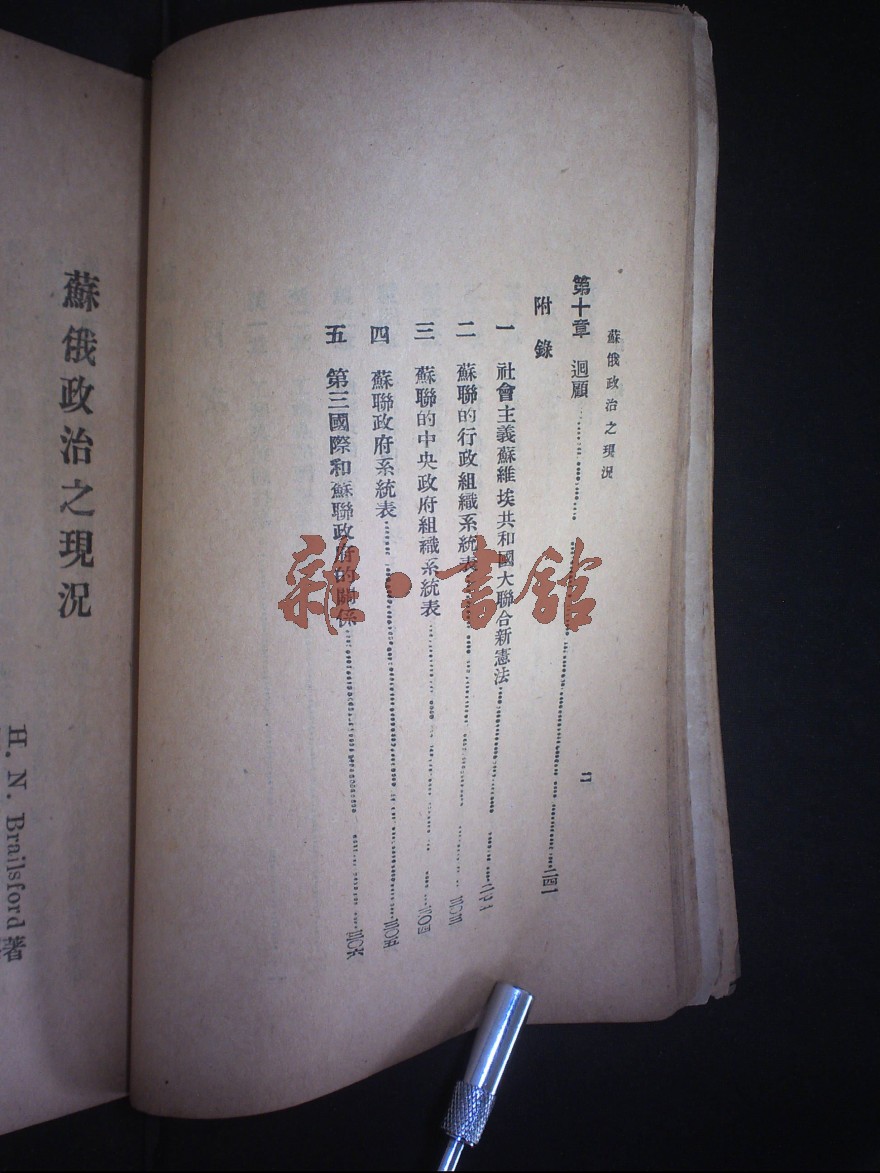 蘇俄政治之現況
二
第十章 迴顧……二四一
附錄
一 社會主義蘇維埃共和國大聯合新憲法……
二 蘇聯的行政組織系統表……三〇三
三 蘇聯的中央政府組織系統表……三〇四
四 蘇聯政府系統表……三〇五
五 第三國際和蘇聯政府的關係……三〇六
蘇俄政治之現況
H. N. Brailsford 著
雜·書館